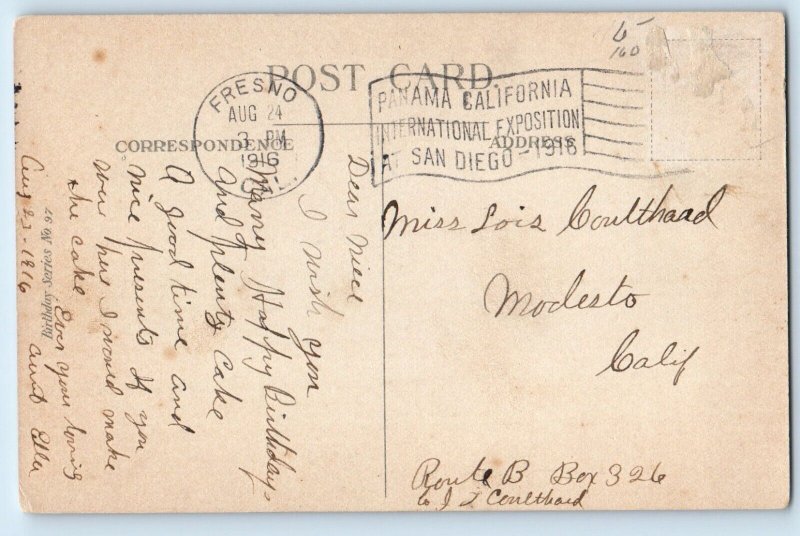 POST CARD.
FRESNO
AUG 24
3 PM
1916
CAL.
PANAMA CALIFORNIA
INTERNATIONAL EXPOSITION
AT SAN DIEGO - 1916
160
CORRESPONDENCE
ADDRESS
Dear Niece
I wish you
Many Happy Birthdays
And plenty Cake
A good time and
nice presents If you
were her I would make
the cake
Ever your loving
aunt Ella
Aug 23-1916
Birthday Series No. 97
Miss Lois Coulthaad
Modesto
Calif
Route B Box 326
c/o J T Coulthard